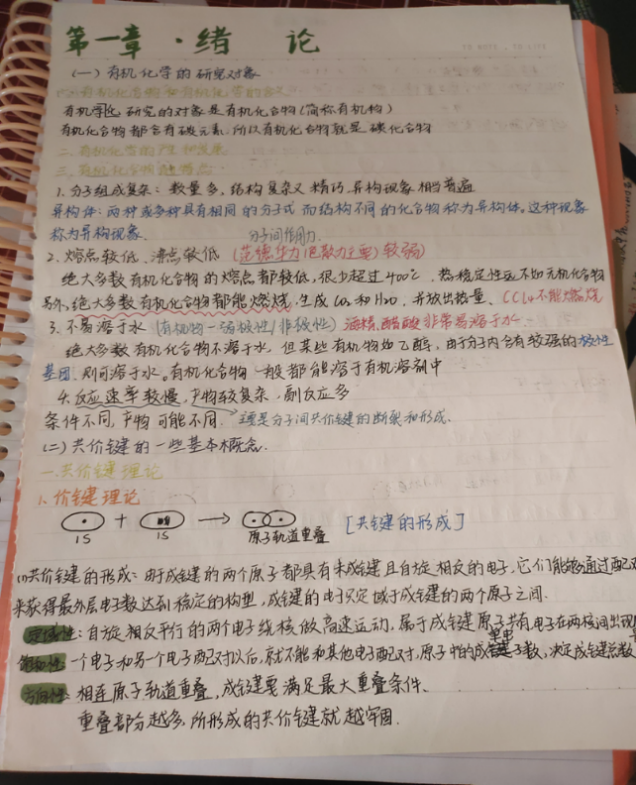 第一章·绪 论
(一) 有机化学的研究对象
有机化学研究的对象是有机化合物(简称有机构)
有机化合物都含有碳元素,所以有机化合物就是碳化合物
二、有机化学的产生和发展
三、有机化合物的特点:
1.分子组成复杂:数量多、结构复杂又精巧、异构现象相当普遍
异构体:两种或多种具有相同的分子式而结构不同的化合物称为异构体。这种现象
称为异构现象.
分子间作用力.
2.熔点较低、沸点较低 (范德华力(色散力主要)较弱)
绝大多数有机化合物的熔点都较低,很少超过400℃,热稳定性远不如无机化合物
另外,绝大多数有机化合物都能燃烧,生成CO2和H2O,并放出热量、CCl4不能燃烧
3.不易溶于水(有机物—弱极性/非极性) 酒精,醋酸非常易溶于水
绝大多数有机化合物不溶于水,但某些有机物如乙醇,由于分子内含有较强的极性
基团,则可溶于水。有机化合物一般都能溶于有机溶剂中
4.反应速率较慢,产物较复杂,副反应多
条件不同,产物可能不同.→主要是分子间共价键的断裂和形成.
(二)共价键的一些基本概念.
一.共价键理论
1.价键理论
1S + 1S → 原子轨道重叠 [共键的形成]
(1)共价键的形成:由于成键的两个原子都具有未成键且自旋相反的电子,它们能够通过配对
来获得最外层电子数达到稳定的构型,成键的电子只定域于成键的两个原子之间.
定域性:自旋相反平行的两个电子绕核做高速运动.属于成键原子共有,电子在两核间出现
饱和性:一个电子和另一个电子配对以后,就不能和其他电子配对,原子中的成单电子数,决定成键总数
方向性:相连原子轨道重叠,成键要满足最大重叠条件.
重叠部分越多,所形成的共价键就越牢固.